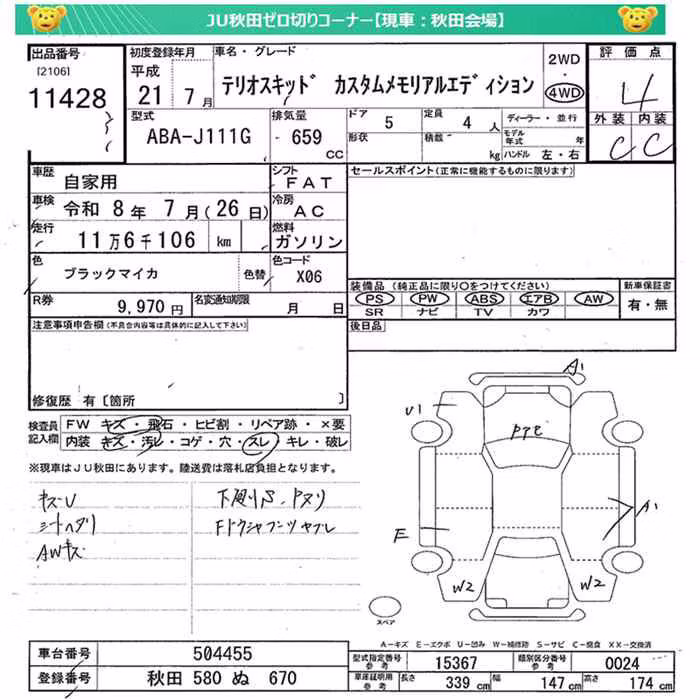 JU秋田ゼロ切りコーナー【現車：秋田会場】
出品番号
[2106]
11428
初度登録年月
平成
21 年 7 月
車名・グレード
テリオスキッド カスタムメモリアルエディション
2WD
・
4WD
評価点
4
外装 内装
C C
型式
ABA-J111G
排気量
659
CC
ドア
5
定員
4 人
形状
積載
kg
ディーラー・並行
モデル年式
年
ハンドル 左・右
車歴
自家用
シフト
FAT
車検
令和 8年 7月(26日)
冷房
AC
走行
11万6千106 km
燃料
ガソリン
色
ブラックマイカ
色替
色コード
X06
R券
9,970円
名変通知期限
月 日
セールスポイント(正常に機能するものに限ります)
装備品 (純正品に限り○をつけてください)
PS PW ABS エアB AW
SR ナビ TV カワ
新車保証書
有・無
後日品
注意事項申告欄(不具合内容等は具体的に記入して下さい)
修復歴 有〔箇所 〕
検査員記入欄
FW キズ・飛石・ヒビ割・リペア跡・×要
内装 キズ・汚レ・コゲ・穴・スレ・キレ・破レ
※現車はJU秋田にあります。陸送費は落札店負担となります。
キズU
シートヘタリ
AWキズ
下廻りS、Pヌリ
Fドクシャフーツヤブレ
A1
U1
PPE
A1
E
W2
W2
スペア
A-キズ E-エクボ U-凹み W-補修跡 S-サビ C-腐食 XX-交換済
車台番号
504455
登録番号
秋田 580 ぬ 670
型式指定番号
参考
15367
類別区分番号
参考
0024
車庫証明用
参考
長さ
339 cm
幅
147 cm
高さ
174 cm